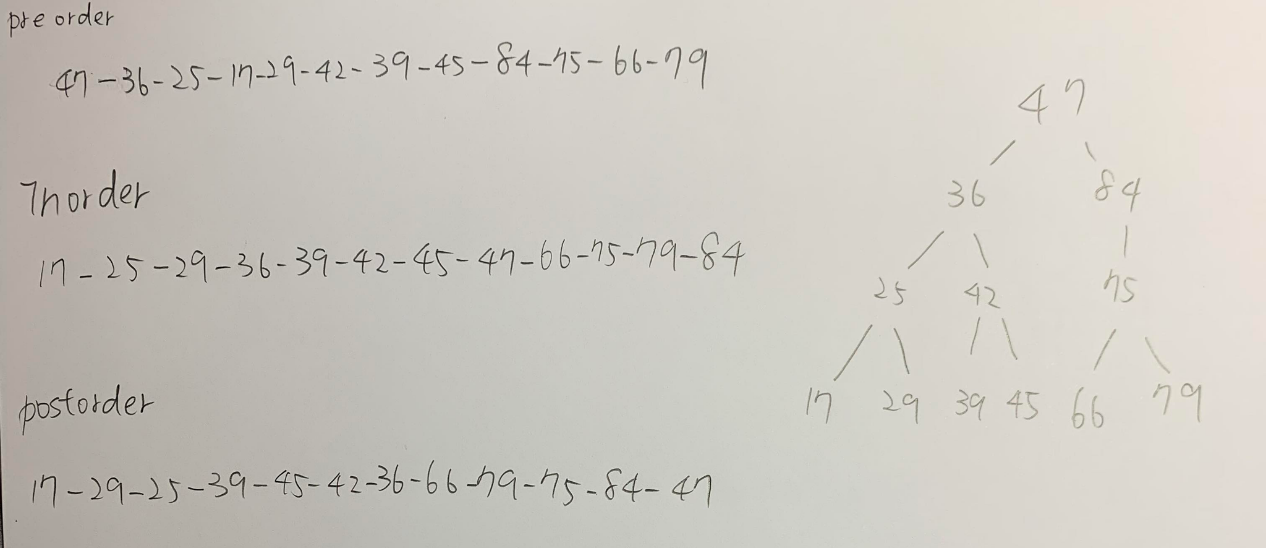 pre order
47-36-25-17-29-42-39-45-84-75-66-79
Inorder
17-25-29-36-39-42-45-47-66-75-79-84
postorder
17-29-25-39-45-42-36-66-79-75-84-47
47
36 84
25 42 75
17 29 39 45 66 79